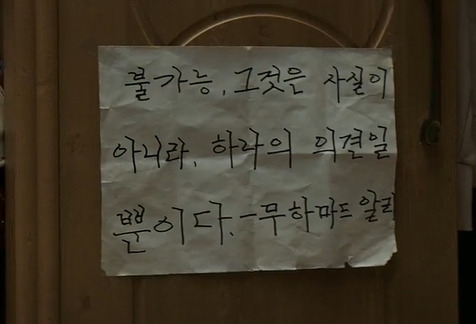 불가능, 그것은 사실이
아니라, 하나의 의견일
뿐이다. - 무하마드 알리